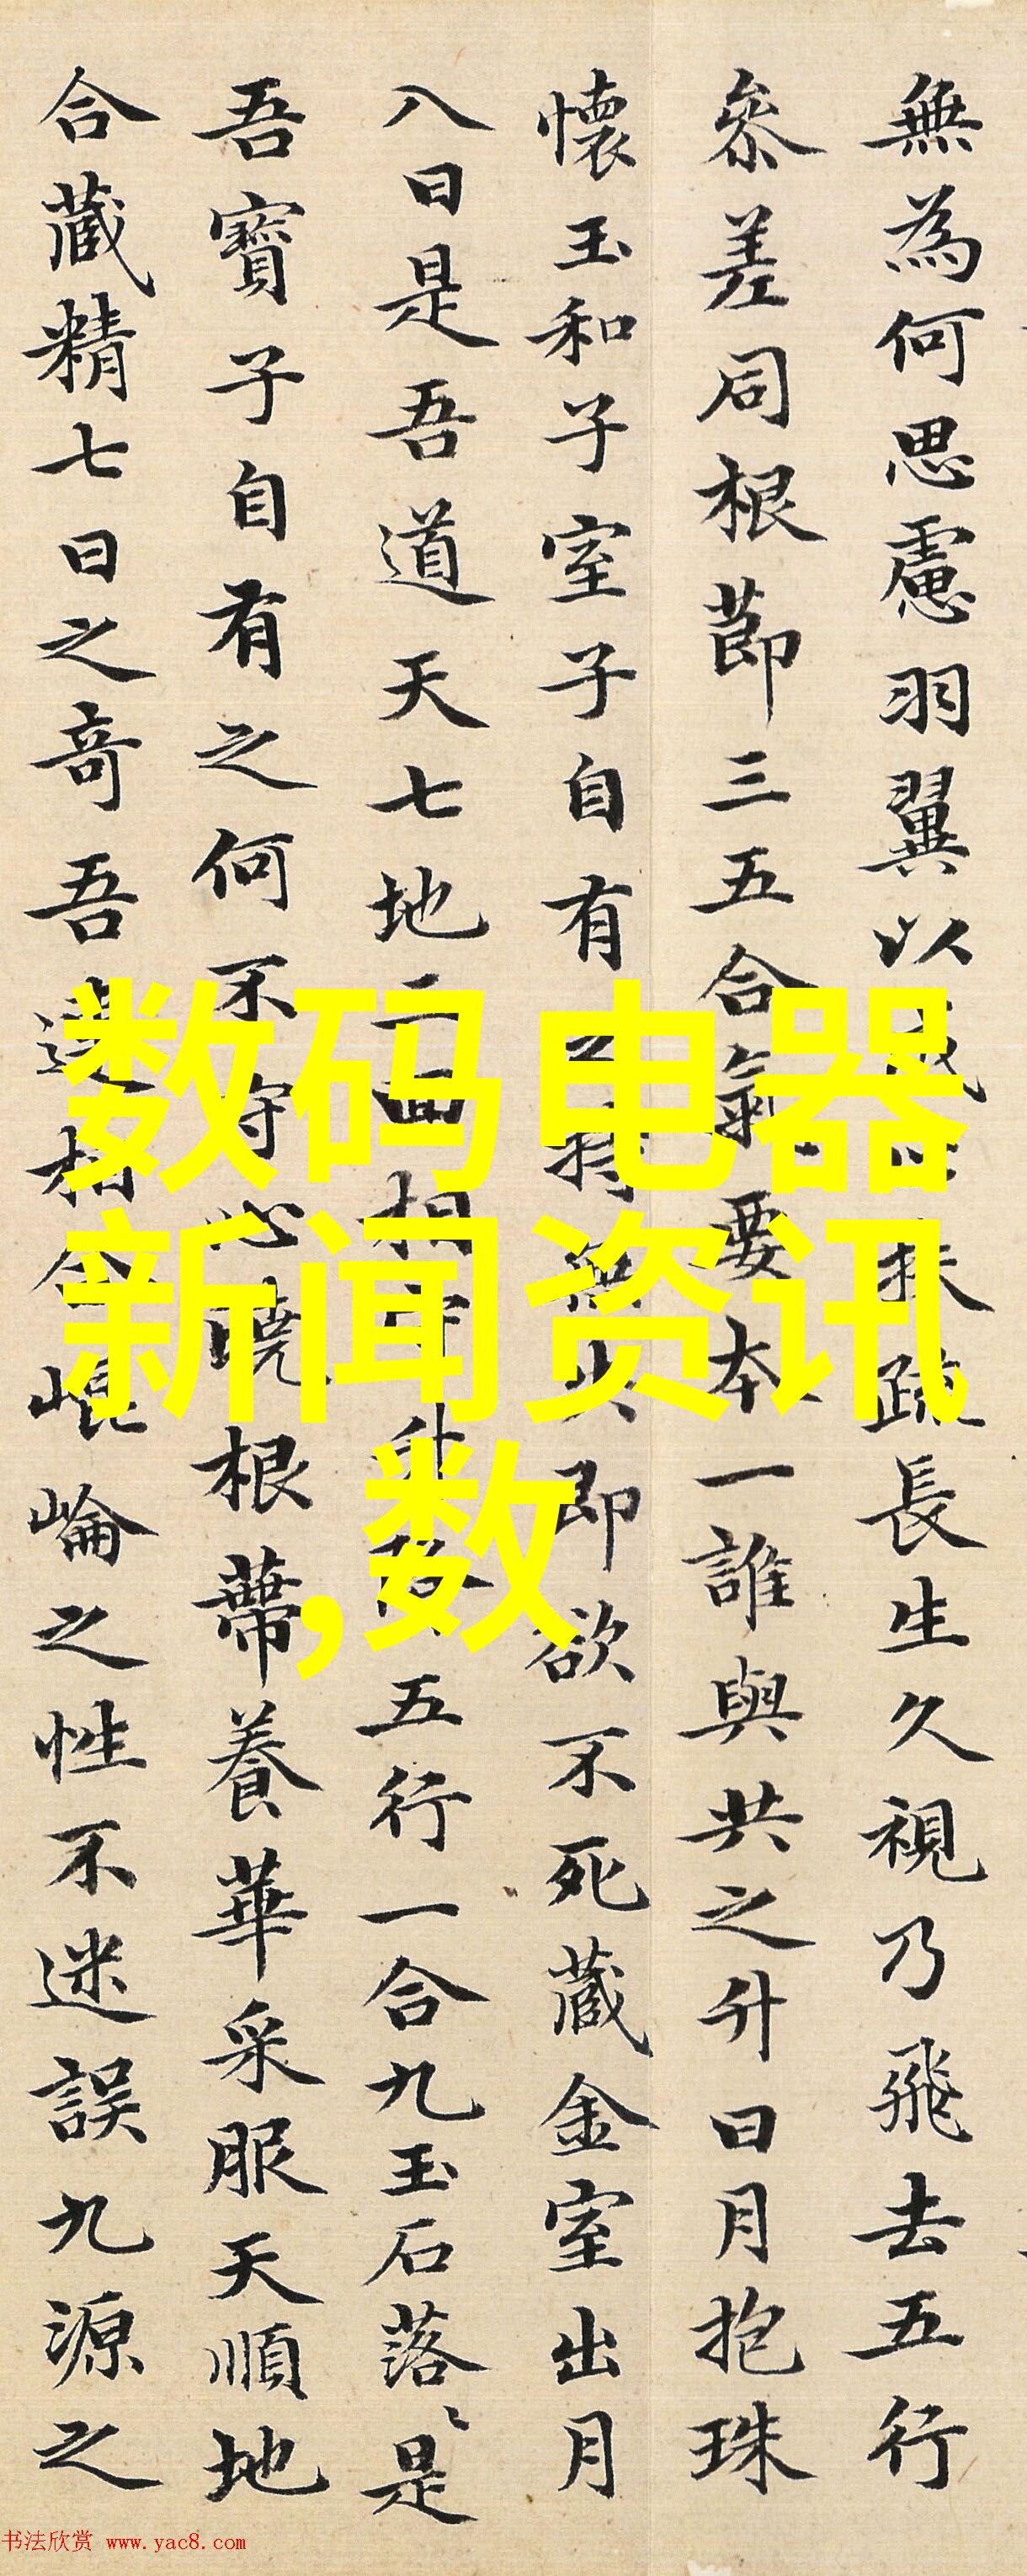 無為何思慮羽翼以成扶疏長生久視乃飛去五行
參差同根節三五合氣要本一誰與共之升日月抱珠
懷玉和子室子自有之持無失即欲不死藏金室出月
八日是吾道天七地三回相守升降五行一合九玉石落〻是
吾寶子自有之何不守心曉根蒂養華采服天順地
合藏精七日之奇吾連相合崐崘之性不迷誤九源之
数码电器
新闻资讯
,数
书法欣赏 www.yac8.com